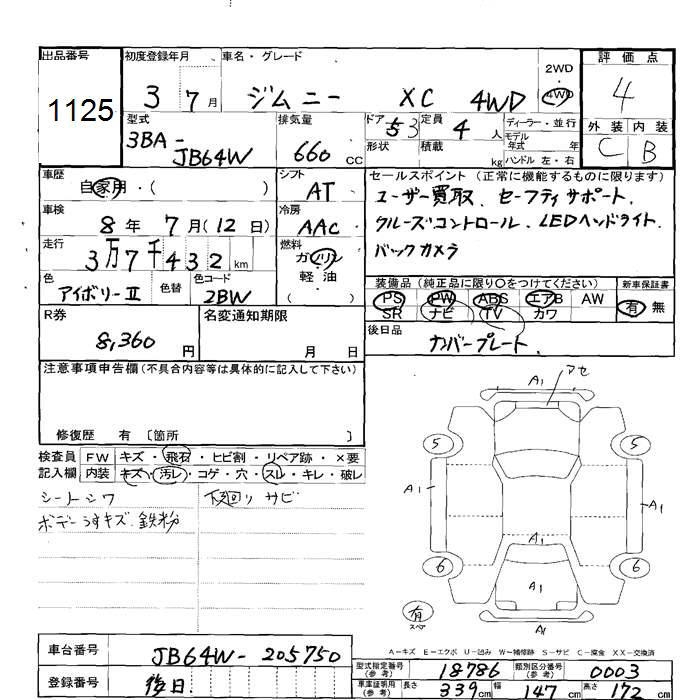 出品番号 初度登録年月 車名・グレード 2WD 評価点
1125 3 7月 ジムニー XC 4WD ・ 4WD 4
型式 排気量 ドア 定員 ディーラー・並行 外装 内装
3BA-JB64W 660 CC 3 4人 モデル年式 年 C B
形状 積載 kg ハンドル 左・右
車歴 自家用・( ) シフト AT セールスポイント (正常に機能するものに限ります)
車検 8年 7月(12日) 冷房 AAC ユーザー買取、セーフティサポート、
走行 3万7千432km 燃料 ガソリン クルーズコントロール、LEDヘッドライト、
軽油 ( ) バックカメラ
色 アイボリーII 色替 色コード 2BW
装備品 (純正品に限り○をつけてください) 新車保証書
PS PW ABS エアB AW 有 無
SR ナビ TV カワ
R券 8,360円 名変通知期限 月 日
後日品 ナンバープレート、
注意事項申告欄 (不具合内容等は具体的に記入して下さい)
修復歴 有 〔箇所 〕
検査員 FW キズ・飛石・ヒビ割・リペア跡・×要
記入欄 内装 キズ・汚レ・コゲ・穴・スレ・キレ・破レ
シートシワ 下廻りサビ
ボデーうすキズ、鉄粉
A1 アセ
5 5
A1 A1
A1
6 6
A1
有 スペア
A1
A-キズ E-エクボ U-凹み W-補修跡 S-サビ C-腐食 XX-交換済
車台番号 JB64W-205750
登録番号 後日
型式指定番号 (参考) 18786 類別区分番号 (参考) 0003
車庫証明用 (参考) 長さ 339cm 幅 147cm 高さ 172cm